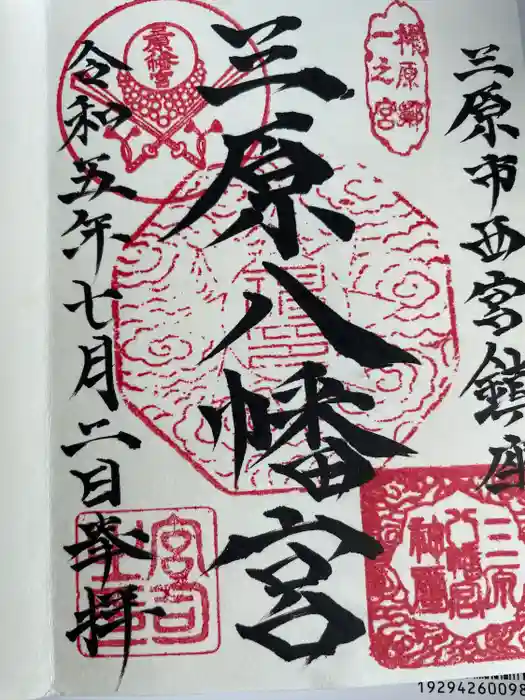 三原市西宮鎮座
三原八幡宮
令和五年七月二日奉拝
一之宮
三原
八幡宮
宮司
19294260098